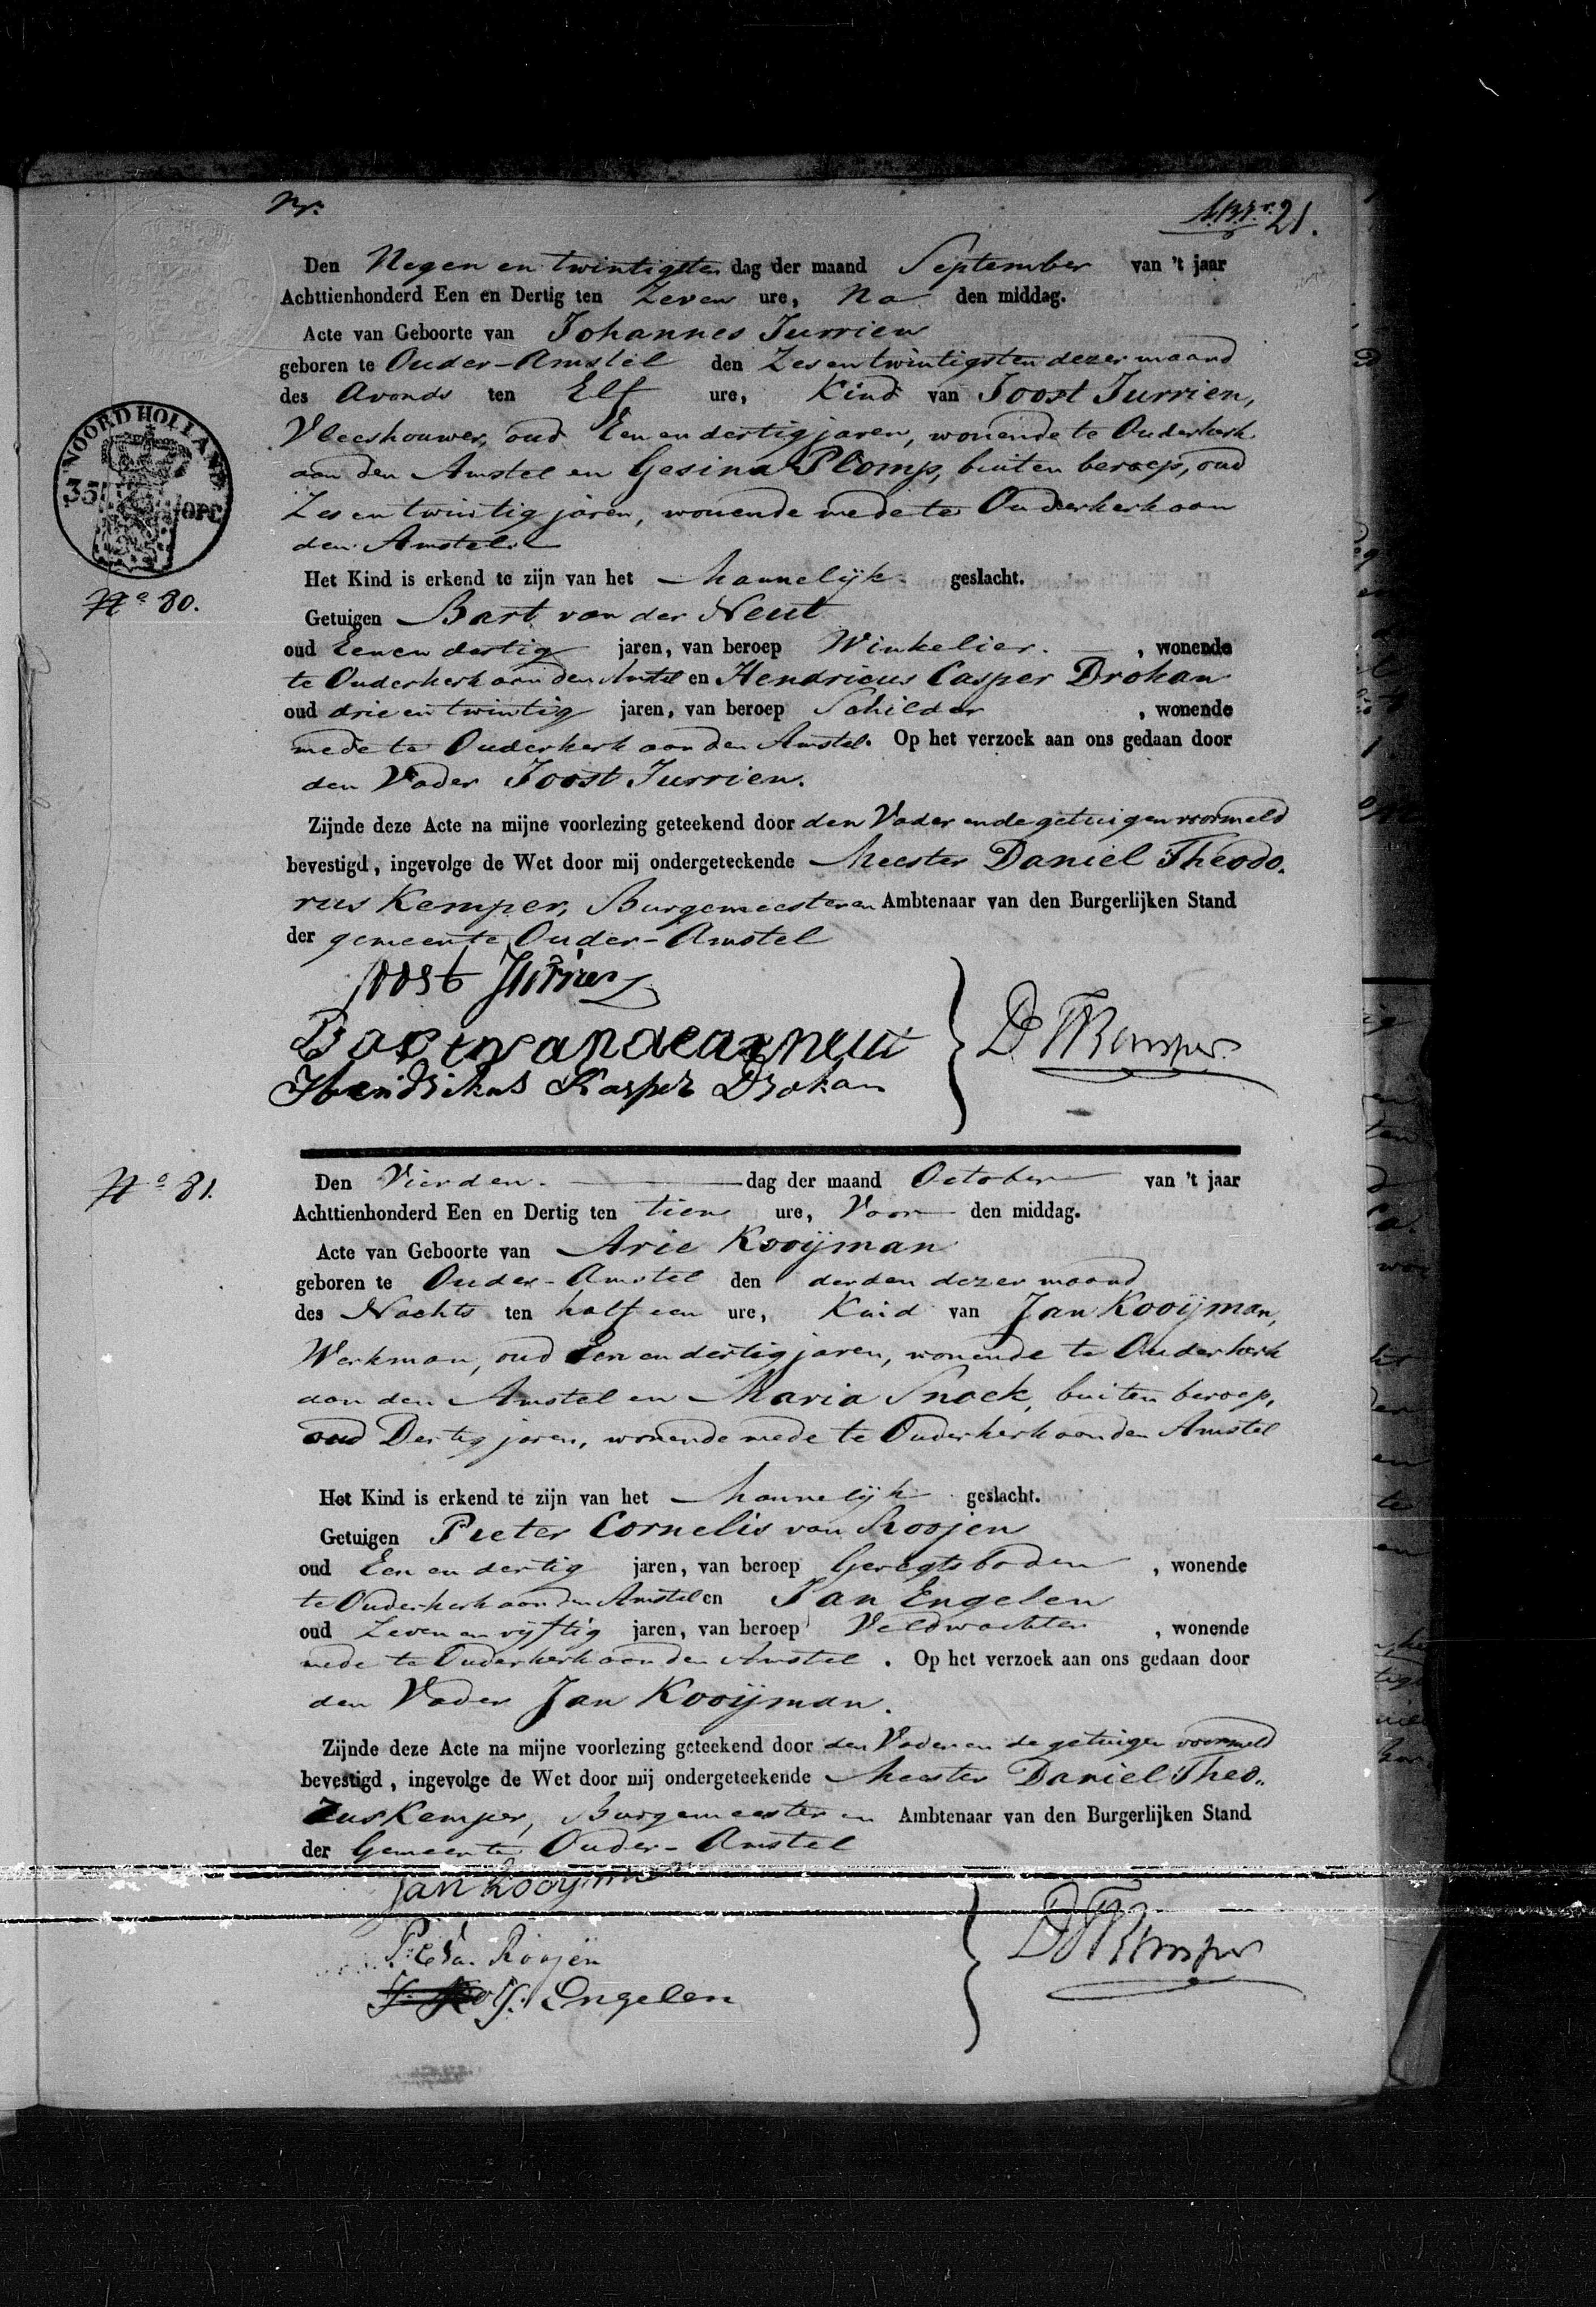 Nr.
21.
Den Negen en twintigsten dag der maand September van 't jaar
Achttienhonderd Een en Dertig ten Zeven ure, Na den middag.
Acte van Geboorte van Johannes Jurrien
geboren te Ouder-Amstel den Zesentwintigsten dezer maand
des Avonds ten Elf ure, Kind van Joost Jurrien,
Vleeshouwer, oud Een en dertig jaren, wonende te Ouderkerk
aan den Amstel en Gesina Plomp, buiten beroep, oud
Zes en twintig jaren, wonende mede te Ouderkerk aan
den Amstel.
NOORD HOLLAND
35
OPC
Het Kind is erkend te zijn van het Mannelijk geslacht.
No 80.
Getuigen Bart van der Neut
oud Eenen dertig jaren, van beroep Winkelier. , wonende
te Ouderkerk aan den Amstel en Hendricus Casper Drohan
oud drie en twintig jaren, van beroep Schilder , wonende
mede te Ouderkerk aan den Amstel. Op het verzoek aan ons gedaan door
den Vader Joost Jurrien.
Zijnde deze Acte na mijne voorlezing geteekend door den Vader en de getuigen voormeld
bevestigd, ingevolge de Wet door mij ondergeteekende Meester Daniel Theodo.
rus Kemper, Burgemeester en Ambtenaar van den Burgerlijken Stand
der gemeente Ouder-Amstel
Joost Jurrien
Bart van der neut
D T Kemper
Hendrikus Kasper Drohan
No 81.
Den Vierden. dag der maand October van 't jaar
Achttienhonderd Een en Dertig ten tien ure, Voor den middag.
Acte van Geboorte van Arie Kooijman
geboren te Ouder-Amstel den derden dezer maand
des Nachts ten half een ure, Kind van Jan Kooijman,
Werkman, oud Een en dertig jaren, wonende te Ouderkerk
aan den Amstel en Maria Snoek, buiten beroep,
oud Dertig jaren, wonende mede te Ouderkerk aan den Amstel
Het Kind is erkend te zijn van het Mannelijk geslacht.
Getuigen Pieter Cornelis van Rooijen
oud Een en dertig jaren, van beroep Geregtsboden , wonende
te Ouderkerk aan den Amstel en Jan Engelen
oud Zeven en vijftig jaren, van beroep Veldwachter , wonende
mede te Ouderkerk aan den Amstel . Op het verzoek aan ons gedaan door
den Vader Jan Kooijman.
Zijnde deze Acte na mijne voorlezing geteekend door den Vader en de getuigen voormeld
bevestigd, ingevolge de Wet door mij ondergeteekende Meester Daniel Theo..
rus Kemper, Burgemeester en Ambtenaar van den Burgerlijken Stand
der Gemeente Ouder-Amstel
Jan Kooijman
P: C Van Roojen
D T Kemper
J. Engelen